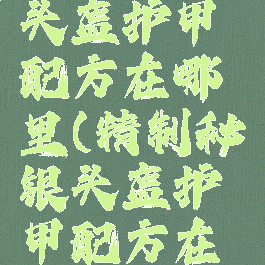 头盔护甲
配方在哪
里(精制秘
银头盔护
甲配方在